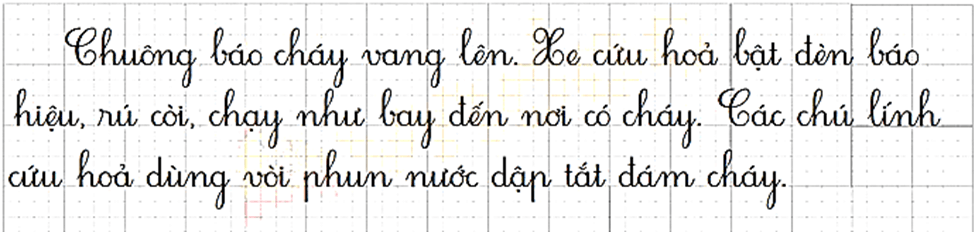 Chuông báo cháy vang lên. Xe cứu hoả bật đèn báo
hiệu, rú còi, chạy như bay đến nơi có cháy. Các chú lính
cứu hoả dùng vòi phun nước dập tắt đám cháy.